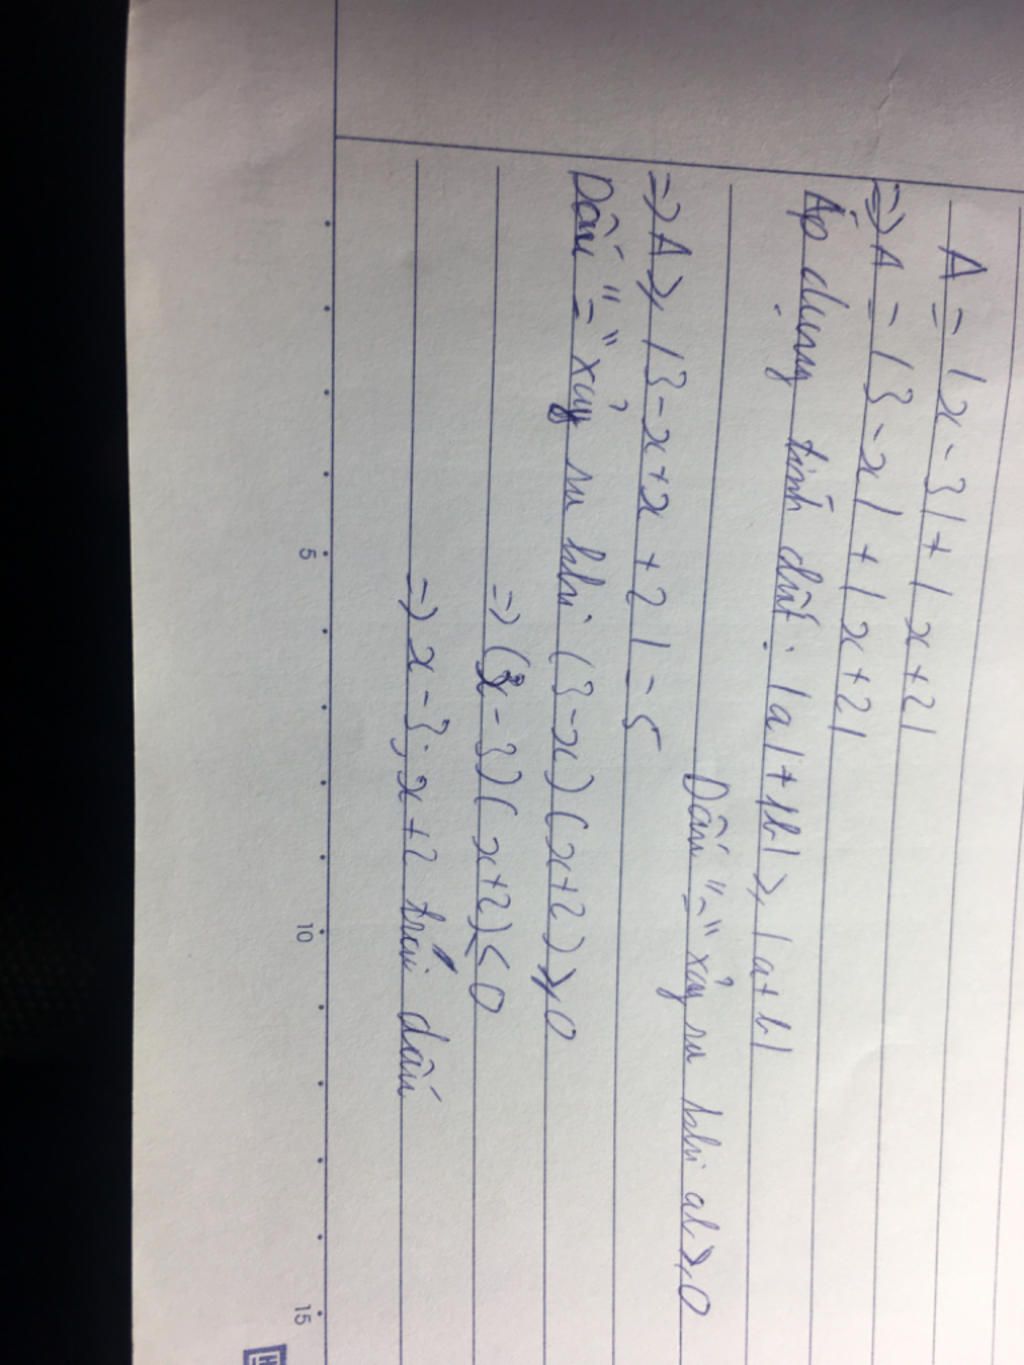 A = |x-3| + |x+2|
=> A = |3-x| + |x+2|
Áp dụng tính chất: |a|+|b| ≥ |a+b|
Dấu "=" xảy ra khi ab ≥ 0
=> A ≥ |3-x+x+2| = 5
Dấu "=" xảy ra khi (3-x)(x+2) ≥ 0
=> (x-3)(x+2) ≤ 0
=> x-3; x+2 trái dấu
5 10 15